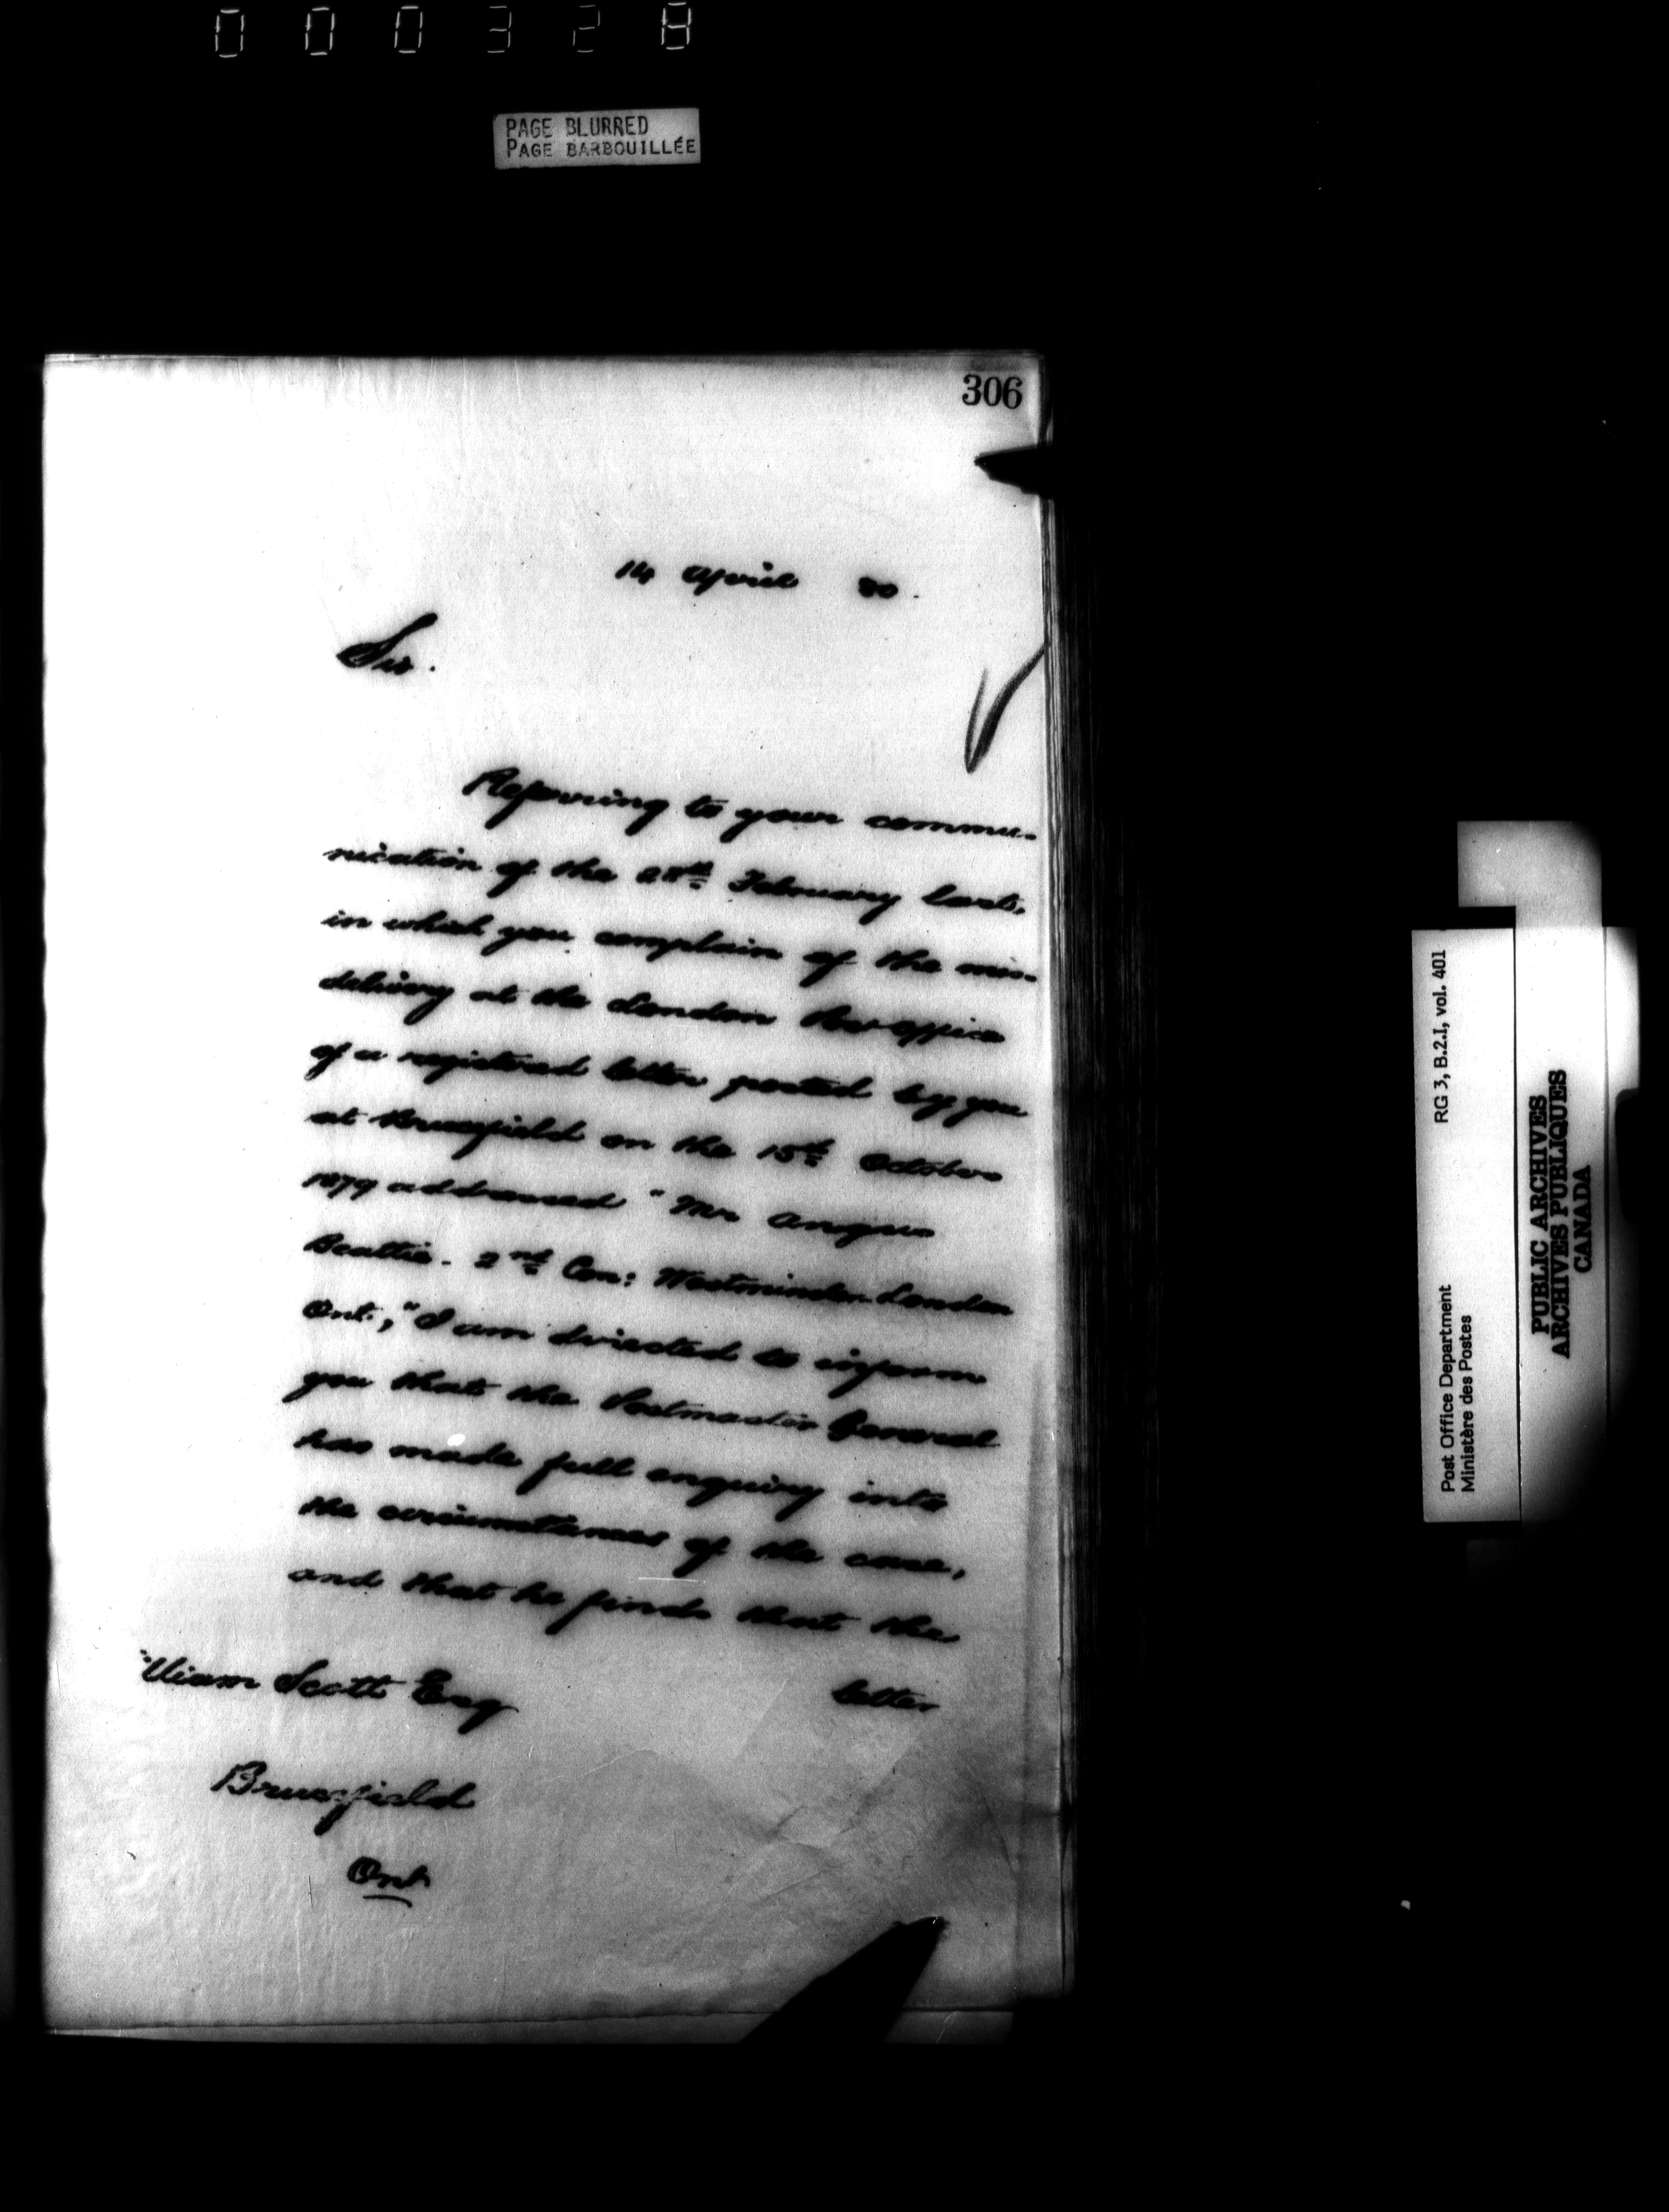 000328
PAGE BLURRED
PAGE BARBOUILLÉE
306
14 April 80.
Sir.
Referring to your commu-
nication of the 28th February last,
in which you complain of the mis-
delivery at the London Post Office
of a registered letter posted by you
at Brucefield on the 15th October
1879 addressed "Mr Angus
Beattie. 2nd Con: Westminster London
Ont.," I am directed to inform
you that the Postmaster General
has made full enquiry into
the circumstances of the case,
and that he finds that the
letter
William Scott Esq
Brucefield
Ont
Post Office Department
Ministère des Postes
RG 3, B.2.1, vol. 401
PUBLIC ARCHIVES
ARCHIVES PUBLIQUES
CANADA